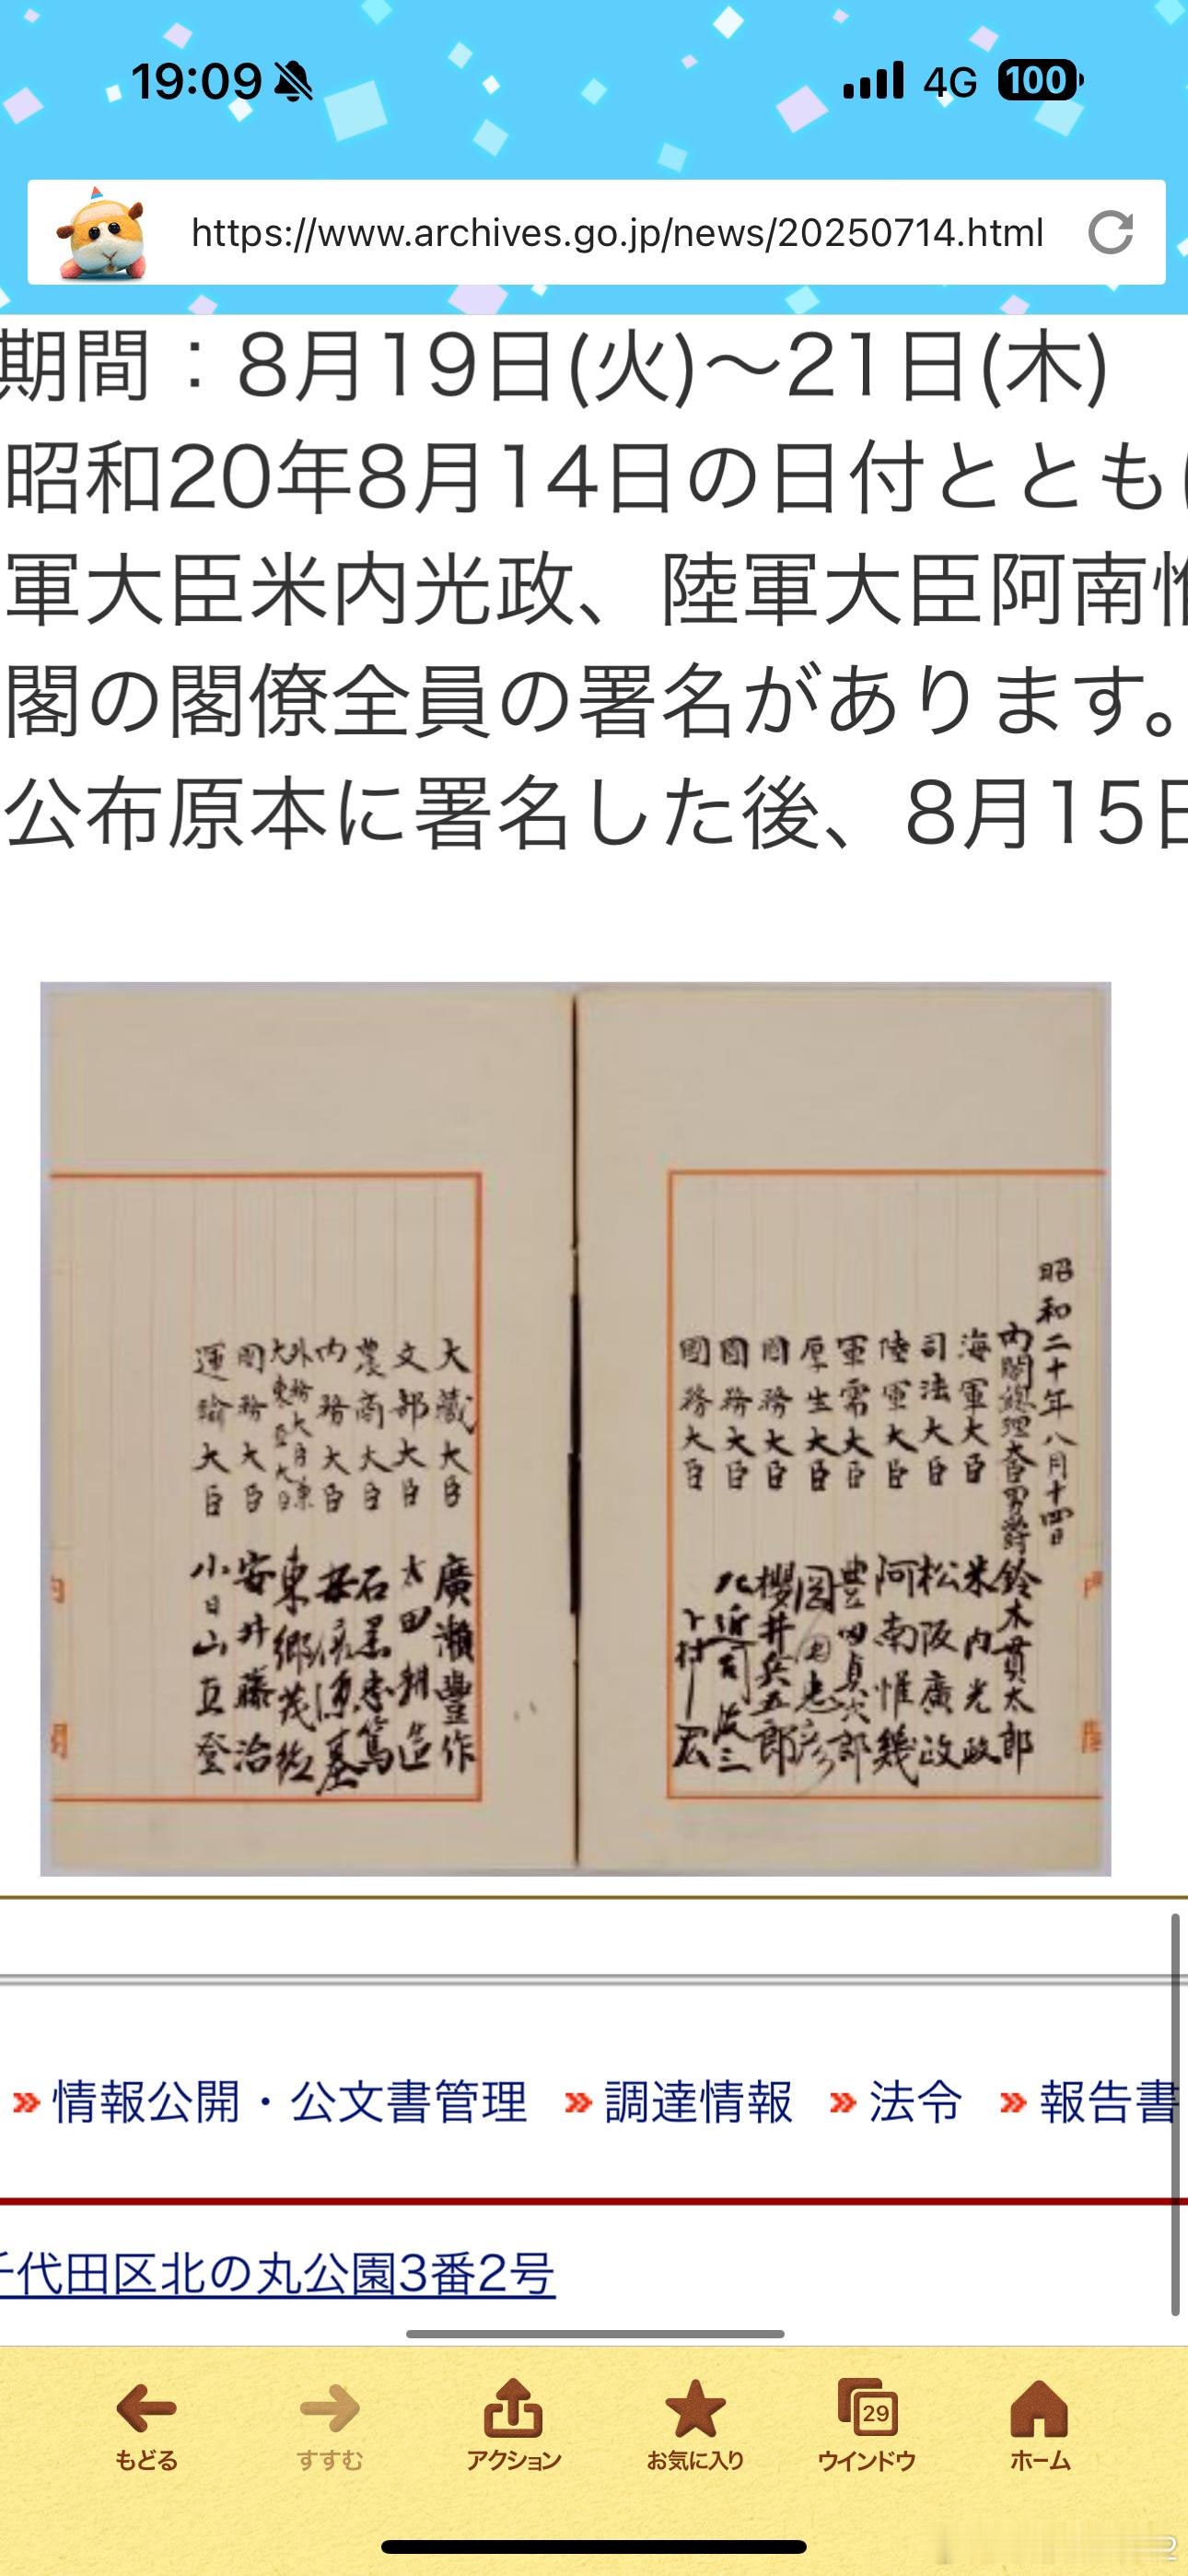 19:09
4G
100
https://www.archives.go.jp/news/20250714.html
期間：8月19日(火)～21日(木)
昭和20年8月14日の日付ととも
軍大臣米内光政、陸軍大臣阿南惟
閣の閣僚全員の署名があります。
公布原本に署名した後、8月15日
昭和二十年八月十四日
内閣總理大臣男爵 鈴木貫太郎
海軍大臣 米内光政
司法大臣 松阪廣政
陸軍大臣 阿南惟幾
軍需大臣 豊田貞次郎
厚生大臣 岡田忠彦
國務大臣 櫻井兵五郎
國務大臣 左近司政三
國務大臣 下村宏
大藏大臣 廣瀬豐作
文部大臣 太田耕造
農商大臣 石黒忠篤
内務大臣 安倍源基
外務大臣兼
大東亞大臣 東郷茂徳
國務大臣 安井藤治
運輸大臣 小日山直登
情報公開・公文書管理
調達情報
法令
報告書
千代田区北の丸公園3番2号
29
もどる
すすむ
アクション
お気に入り
ウインドウ
ホーム